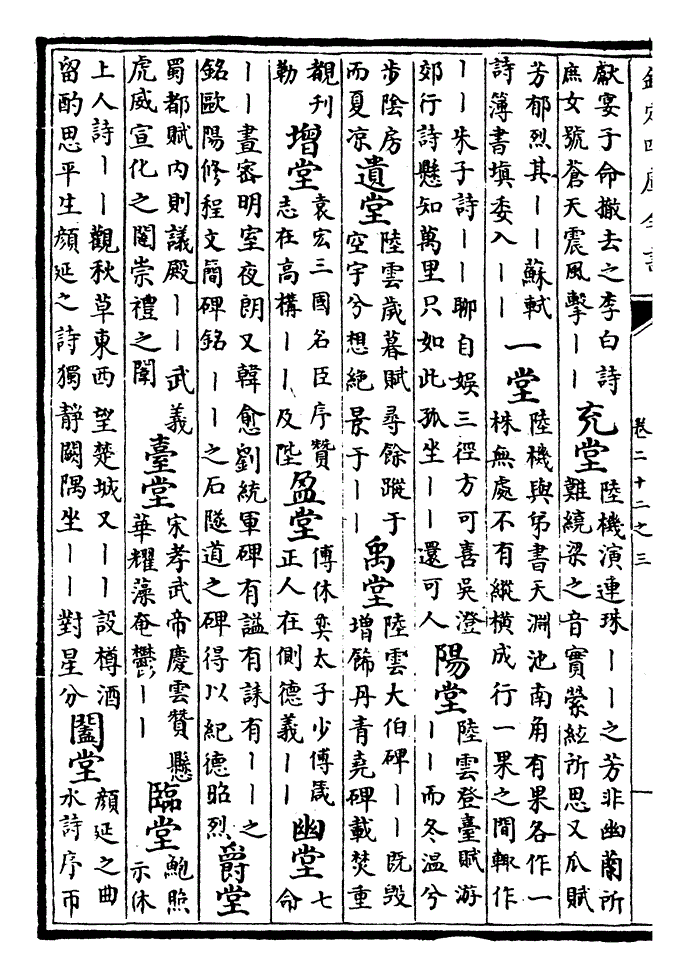 欽定四庫全書
卷二十二之三
獻宴于命撤去之李白詩
庶女號蒼天震風擊丨丨
充堂
陸機演連珠丨丨之芳非幽蘭所
難繞梁之音實縈絃所思又瓜賦
芳郁烈其丨丨蘇軾
詩簿書填委入丨丨
一堂
陸機與弟書天淵池南角有果各作一
株無處不有縱横成行一果之間輙作
丨丨朱子詩丨丨聊自娛三徑方可喜吳澄
郊行詩懸知萬里只如此孤坐丨丨還可人
陽堂
陸雲登臺賦游
丨丨而冬温兮
步陰房
而夏凉
遺堂
陸雲歲暮賦尋餘蹤于
空宇兮想絶景于丨丨
禹堂
陸雲大伯碑丨丨既毁
增飾丹青堯碑載焚重
觀刊
勒
增堂
袁宏三國名臣序贊
志在高構丨丨及陛
盈堂
傅休奕太子少傅箴
正人在側德義丨丨
幽堂
七
命
丨丨晝密明室夜朗又韓愈劉統軍碑有謚有誄有丨丨之
銘歐陽修程文簡碑銘丨丨之石隧道之碑得以紀德昭烈
爵堂
蜀都賦内則議殿丨丨武義
虎威宣化之闥崇禮之闈
臺堂
宋孝武帝慶雲贊懸
華耀藻奄鬱丨丨
臨堂
鮑照
示休
上人詩丨丨觀秋草東西望楚城又丨丨設樽酒
留酌思平生顔延之詩獨靜闕隅坐丨丨對星分
闔堂
顔延之曲
水詩序帀